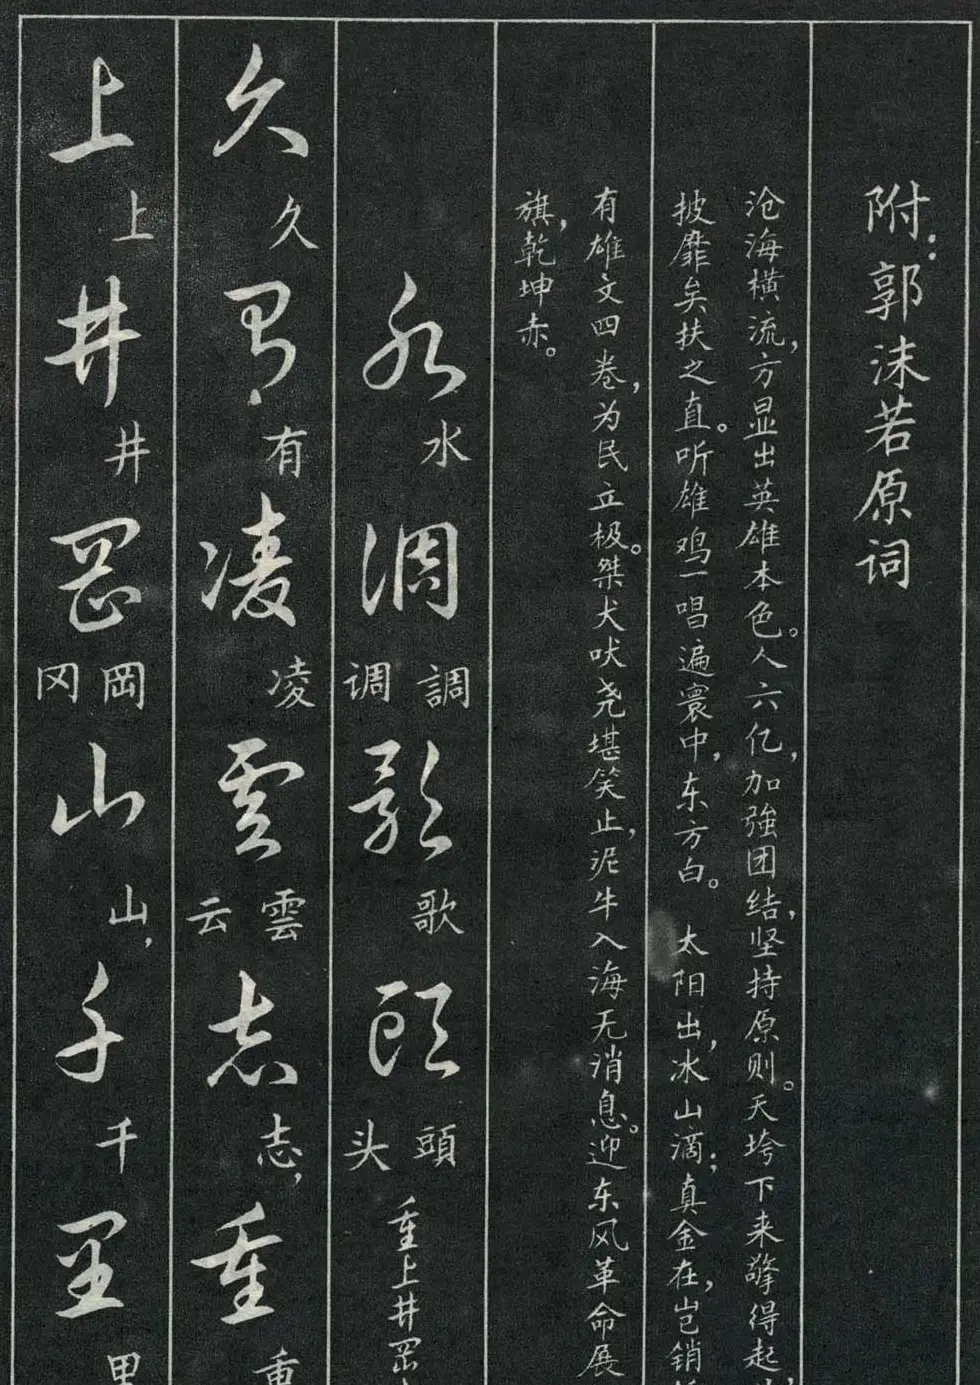 附：郭沫若原词
沧海横流，方显出英雄本色。人六亿，加強团结，坚持原则。天垮下来擎得起，
披靡矣扶之直。听雄鸡一唱遍寰中，东方白。 太阳出，冰山滴；真金在，岂销
有雄文四卷，为民立极。桀犬吠尧堪笑止，泥牛入海无消息。迎东风革命展
旗，乾坤赤。
水 水 調 調 调 歌 歌 頭 頭 头 重上井岡
久 久 有 有 凌 凌 雲 雲 云 志 志， 重 重
上 上 井 井 岡 岡 冈 山 山， 千 千 里 里